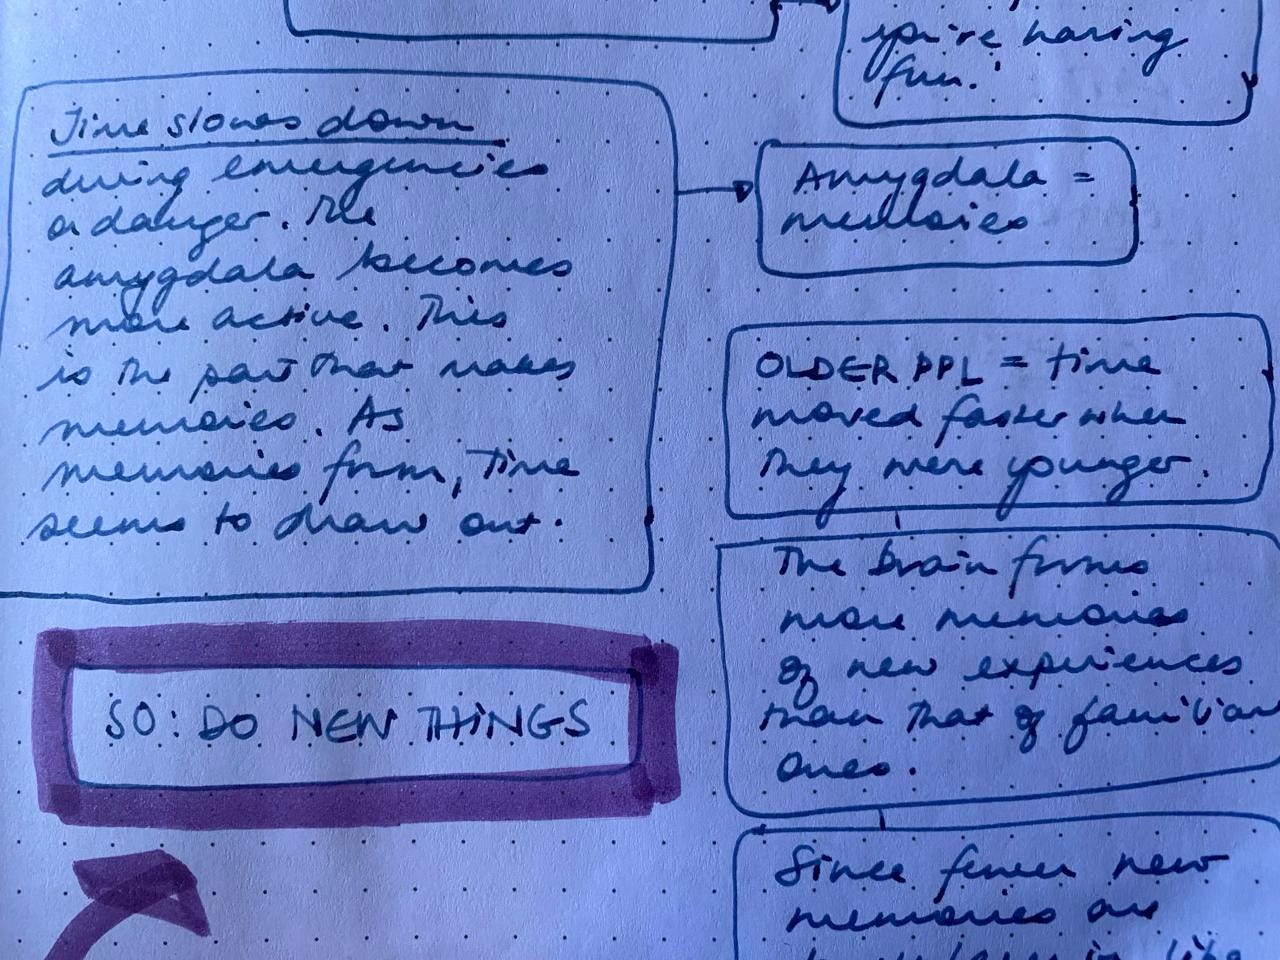 you're having
fun.'
Time slows down
during emergencies
or danger. The
amygdala becomes
more active. This
is the part that makes
memories. As
memories form, time
seems to draw out.
Amygdala =
memories
OLDER PPL = time
moved faster when
they were younger.
The brain forms
more memories
of new experiences
than that of familiar
ones.
SO: DO NEW THINGS
Since fewer new
memories are